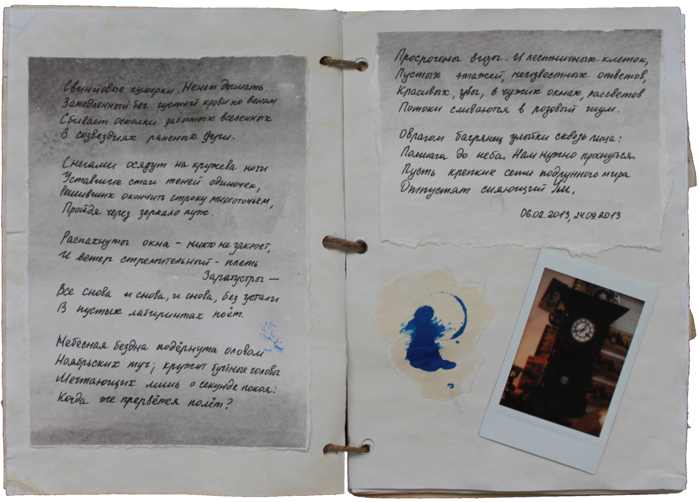 Свинцовые сумерки. Нечем дышать
Замедленный бег густой крови по венам
Сбивает осколки забытых вселенных
В созвездиях раненых душ.
Снегами осядут на кружева ночи
Уставшие стаи теней одиночек,
Решивших окончить строку многоточьем,
Пройдя через зеркало луж.
Распахнуты окна – никто не закроет,
И ветер стремительный – плеть
Заратустры —
Все снова и снова, и снова, без устали
В пустых лабиринтах поёт.
Небесная бездна подёрнута оловом
Ноябрьских туч; кружит буйные головы
Мечтающих лишь о секунде покоя:
Когда же прервётся полёт?
Просрочены визы. И лестничных клеток,
Пустых этажей, неизвестных ответов,
Красивых, увы, в чужих окнах, рассветов
Потоки сливаются в розовый шум.
Оврагом багрянец улыбки сквозь лица:
Полшага до неба. Нам нужно проснуться.
Пусть крепкие сети подлунного мира
Отпустят сияющий
06.02.2013, 24.09.2013